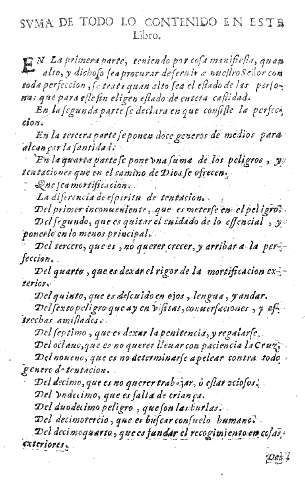 SVMA DE TODO LO CONTENIDO EN ESTE
Libro.
EN La primera parte, teniendo por cosa manifiesta, quan
alto, y dichoso sea procurar de seruir a nuestro Señor con
toda perfeccion, se trata quan alto sea el estado de las perso-
nas que para este fin eligen estado de entera castidad.
En la segunda parte se declara en que consiste la perfec-
cion.
En la tercera parte se ponen doce generos de medios para
alcançar la santidad.
En la quarta parte se pone vna suma de los peligros, y
tentaciones que en el camino de Dios se ofrecen.
Que sea mortificacion.
La diferencia de espiritu de tentacion.
Del primer inconueniente, que es meterse en el peligro.
Del segundo, que es quitar el cuidado de lo essencial, y
ponerlo en lo menos principal.
Del tercero, que es, no querer crecer, y arribar a la per-
feccion.
Del quarto, que es dexar el rigor de la mortificacion ex-
terior.
Del quinto, que es descuido en ojos, lengua, y andar.
Del sexto peligro que ay en visitas, conuersaciones, y es-
trechas amistades.
Del septimo, que es dexar la penitencia, y regalarse.
Del octauo, que es no querer lleuar con paciencia la Cruz.
Del noueno, que es no determinarse a pelear contra todo
genero de tentacion.
Del decimo, que es no querer trabajar, ò estar ociosos.
Del vndecimo, que es falta de criança.
Del duodecimo peligro, que son las burlas.
Del decimotercio, que es buscar consuelo humano.
Del decimoquarto, que es fundar el recogimiento en cosas
exteriores.
Del